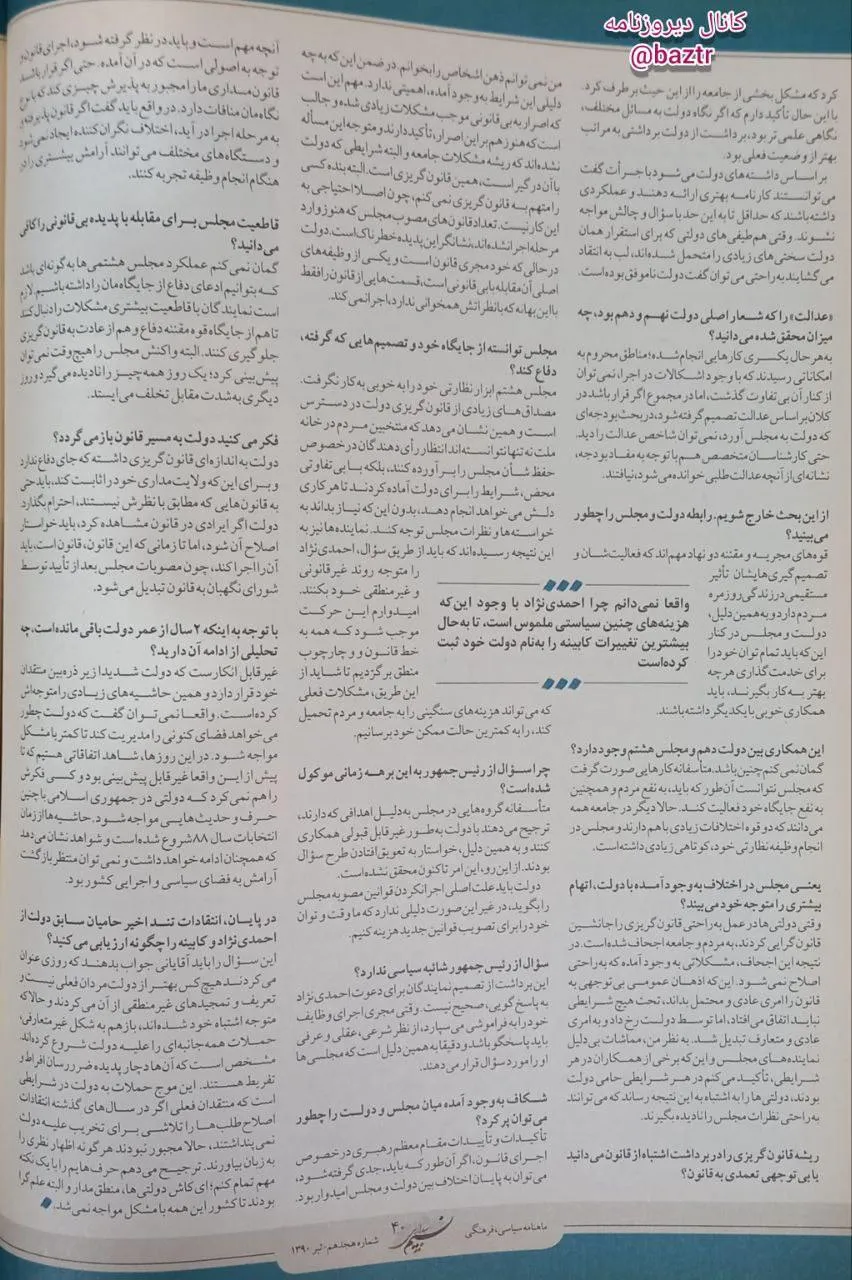 کانال دیروزنامه
@baztr
کرد که مشکل بخشی از جامعه را از این حیث برطرف کرد.
با این حال تأکید دارم که اگر نگاه دولت به مسائل مختلف،
نگاهی علمی تر بود، برداشت از دولت برداشتی به مراتب
بهتر از وضعیت فعلی بود.
بر اساس داشته‌های دولت می‌شود با جرأت گفت
می‌توانستند کارنامه بهتری ارائه دهند و عملکردی
داشته باشند که حداقل تا به این حد با سؤال و چالش مواجه
نشوند. وقتی هم‌طیفی‌های دولتی که برای استقرار همان
دولت سختی‌های زیادی را متحمل شده‌اند، لب به انتقاد
می‌گشایند به راحتی می‌توان گفت دولت ناموفق بوده است.
«عدالت» را که شعار اصلی دولت نهم و دهم بود، چه
میزان محقق شده می‌دانید؟
به هر حال یکسری کارهایی انجام شده؛ مناطق محروم به
امکاناتی رسیدند که با وجود اشکالات در اجرا، نمی‌توان
از کنار آن بی‌تفاوت گذشت، اما در مجموع اگر قرار باشد در
کلان بر اساس عدالت تصمیم گرفته شود، در بحث بودجه‌ای
که دولت به مجلس آورد، نمی‌توان شاخص عدالت را دید.
حتی کارشناسان متخصص هم با توجه به مفاد بودجه،
نشانه‌ای از آنچه عدالت طلبی خوانده می‌شود، نیافتند.
از این بحث خارج شویم. رابطه دولت و مجلس را چطور
می‌بینید؟
قوه‌های مجریه و مقننه دو نهاد مهم‌اند که فعالیت‌شان و
تصمیم‌گیری‌هایشان تأثیر
مستقیمی در زندگی روزمره
مردم دارد و به همین دلیل،
دولت و مجلس در کنار
این که باید تمام توان خود را
برای خدمت‌گذاری هر چه
بهتر به کار بگیرند، باید
همکاری خوبی با یکدیگر داشته باشند.
این همکاری بین دولت دهم و مجلس هشتم وجود دارد؟
گمان نمی‌کنم چنین باشد. متأسفانه کارهایی صورت گرفت
که مجلس نتوانست آن‌طور که باید، به نفع مردم و همچنین
به نفع جایگاه خود فعالیت کند. حالا دیگر در جامعه همه
می‌دانند که دو قوه اختلافات زیادی با هم دارند و مجلس در
انجام وظیفه نظارتی خود، کوتاهی زیادی داشته است.
یعنی مجلس در اختلاف به وجود آمده با دولت، اتهام
بیشتری را متوجه خود می‌بیند؟
وقتی دولتی‌ها در عمل به راحتی قانون‌گریزی را جانشین
قانون‌گرایی کردند، به مردم و جامعه اجحاف شده است. در
نتیجه این اجحاف، مشکلاتی به وجود آمده که به راحتی
اصلاح نمی‌شود. این که اذهان عمومی بی‌توجهی به
قانون را امری عادی و محتمل بداند، تحت هیچ شرایطی
نباید اتفاق می‌افتاد، اما توسط دولت رخ داد و به امری
عادی و متعارف تبدیل شد. به نظر من، مماشات بی‌دلیل
نماینده‌های مجلس و این که برخی از همکاران در هر
شرایطی، تأکید می‌کنم در هر شرایطی حامی دولت
بودند، دولتی‌ها را به اشتباه به این نتیجه رساند که می‌توانند
به راحتی نظرات مجلس را نادیده بگیرند.
ریشه قانون‌گریزی را در برداشت اشتباه از قانون می‌دانید
یا بی‌توجهی تعمدی به قانون؟
من نمی‌توانم ذهن اشخاص را بخوانم. در ضمن این که به چه
دلیلی این شرایط به وجود آمده، اهمیتی ندارد. مهم این است
که اصرار به بی‌قانونی موجب مشکلات زیادی شده و جالب
است که هنوز هم بر این اصرار، تأکید دارند و متوجه این مسأله
نشده‌اند که ریشه مشکلات جامعه و البته شرایطی که دولت
با آن درگیر است، همین قانون‌گریزی است. البته بنده کسی
را متهم به قانون‌گریزی نمی‌کنم، چون اصلا احتیاجی به
این کار نیست. تعداد قانون‌های مصوب مجلس که هنوز وارد
مرحله اجرا نشده‌اند، نشانگر این پدیده خطرناک است. دولت
در حالی که خود مجری قانون است و یکی از وظیفه‌های
اصلی آن مقابله با بی‌قانونی است، قسمت‌هایی از قانون را فقط
با این بهانه که با نظراتش همخوانی ندارد، اجرا نمی‌کند.
مجلس توانسته از جایگاه خود و تصمیم‌هایی که گرفته،
دفاع کند؟
مجلس هشتم ابزار نظارتی خود را به خوبی به کار نگرفت.
مصداق‌های زیادی از قانون‌گریزی دولت در دسترس
است و همین نشان می‌دهد که منتخبین مردم در خانه
ملت نه تنها نتوانسته‌اند انتظار رأی‌دهندگان در خصوص
حفظ شأن مجلس را برآورده کنند، بلکه با بی‌تفاوتی
محض، شرایط را برای دولت آماده کردند تا هر کاری
دلش می‌خواهد انجام دهد، بدون این که نیاز بداند به
خواسته‌ها و نظرات مجلس توجه کند. نماینده‌ها نیز به
این نتیجه رسیده‌اند که باید از طریق سؤال، احمدی‌نژاد
را متوجه روند غیرقانونی
و غیرمنطقی خود بکنند.
امیدوارم این حرکت
موجب شود که همه به
خط قانون و چارچوب
منطق برگردیم تا شاید از
این طریق، مشکلات فعلی
که می‌تواند هزینه‌های سنگینی را به جامعه و مردم تحمیل
کند، را به کمترین حالت ممکن خود برسانیم.
واقعا نمی‌دانم چرا احمدی‌نژاد با وجود این‌که
هزینه‌های چنین سیاستی ملموس است، تا به‌حال
بیشترین تغییرات کابینه را به‌نام دولت خود ثبت
کرده‌است
چرا سؤال از رئیس جمهور به این برهه زمانی موکول
شده است؟
متأسفانه گروه‌هایی در مجلس به دلیل اهدافی که دارند،
ترجیح می‌دهند با دولت به طور غیر قابل قبولی همکاری
کنند و به همین دلیل، خواستار به تعویق افتادن طرح سؤال
بودند. از این رو، این امر تاکنون محقق نشده است.
دولت باید علت اصلی اجرا نکردن قوانین مصوبه مجلس
را بگوید، در غیر این صورت دلیلی ندارد که ما وقت و توان
خود را برای تصویب قوانین جدید هزینه کنیم.
سؤال از رئیس جمهور شائبه سیاسی ندارد؟
این برداشت از تصمیم نمایندگان برای دعوت احمدی‌نژاد
به پاسخ‌گویی، صحیح نیست. وقتی مجری اجرای وظایف
خود را به فراموشی می‌سپارد، از نظر شرعی، عقلی و عرفی
باید پاسخگو باشد و دقیقا به همین دلیل است که مجلسی‌ها
او را مورد سؤال قرار می‌دهند.
شکاف به وجود آمده میان مجلس و دولت را چطور
می‌توان پر کرد؟
تأکیدات و تأییدات مقام معظم رهبری در خصوص
اجرای قانون، اگر آن‌طور که باید، جدی گرفته شود،
می‌توان به پایان اختلاف بین دولت و مجلس امیدوار بود.
آنچه مهم است و باید در نظر گرفته شود، اجرای قانون و
توجه به اصولی است که در آن آمده. حتی اگر قرار باشد
قانون‌مداری ما را مجبور به پذیرش چیزی کند که با نوع
نگاه‌مان منافات دارد. در واقع باید گفت اگر قانون پذیرفته و
به مرحله اجرا در آید، اختلاف نگران‌کننده ایجاد نمی‌شود
و دستگاه‌های مختلف می‌توانند آرامش بیشتری را در
هنگام انجام وظیفه تجربه کنند.
قاطعیت مجلس برای مقابله با پدیده بی‌قانونی را کافی
می‌دانید؟
گمان نمی‌کنم عملکرد مجلس هشتمی‌ها به گونه‌ای باشد
که بتوانیم ادعای دفاع از جایگاه‌مان را داشته باشیم. لازم
است نمایندگان با قاطعیت بیشتری مشکلات را دنبال کنند
تا هم از جایگاه قوه مقننه دفاع و هم از عادت به قانون‌گریزی
جلوگیری کنند. البته واکنش مجلس را هیچ‌وقت نمی‌توان
پیش‌بینی کرد؛ یک روز همه چیز را نادیده می‌گیرد و روز
دیگری به شدت مقابل تخلف می‌ایستد.
فکر می‌کنید دولت به مسیر قانون باز می‌گردد؟
دولت به اندازه‌ای قانون‌گریزی داشته که جای دفاع ندارد
و برای این که ولایت‌مداری خود را ثابت کند، باید حتی
به قانون‌هایی که مطابق با نظرش نیستند، احترام بگذارد.
دولت اگر ایرادی در قانون مشاهده کرد، باید خواستار
اصلاح آن شود، اما تا زمانی که این قانون، قانون است، باید
آن را اجرا کند، چون مصوبات مجلس بعد از تأیید توسط
شورای نگهبان به قانون تبدیل می‌شود.
با توجه به اینکه ۲ سال از عمر دولت باقی مانده است، چه
تحلیلی از ادامه آن دارید؟
غیر قابل انکار است که دولت شدیدا زیر ذره‌بین منتقدان
خود قرار دارد و همین حاشیه‌های زیادی را متوجه‌اش
کرده است. واقعا نمی‌توان گفت که دولت چطور
می‌خواهد فضای کنونی را مدیریت کند تا کمتر با مشکل
مواجه شود. در این روزها، شاهد اتفاقاتی هستیم که تا
پیش از این واقعا غیر قابل پیش‌بینی بود و کسی فکرش
را هم نمی‌کرد که دولتی در جمهوری اسلامی با چنین
حرف و حدیث‌هایی مواجه شود. حاشیه‌ها از زمان
انتخابات سال ۸۸ شروع شده است و شواهد نشان می‌دهد
که همچنان ادامه خواهد داشت و نمی‌توان منتظر بازگشت
آرامش به فضای سیاسی و اجرایی کشور بود.
در پایان، انتقادات تند اخیر حامیان سابق دولت از
احمدی‌نژاد و کابینه را چگونه ارزیابی می‌کنید؟
این سؤال را باید آقایانی جواب بدهند که روزی عنوان
می‌کردند هیچ‌کس بهتر از دولت‌مردان فعلی نیست و
تعریف و تمجیدهای غیرمنطقی از آن می‌کردند و حالا که
متوجه اشتباه خود شده‌اند، باز هم به شکل غیرمتعارفی،
حملات همه‌جانبه‌ای را علیه دولت شروع کرده‌اند.
مشخص است که آن‌ها دچار پدیده ضرررسان افراط و
تفریط هستند. این موج حملات به دولت در شرایطی
است که منتقدان فعلی اگر در سال‌های گذشته انتقادات
اصلاح‌طلب‌ها را تلاشی برای تخریب علیه دولت
نمی‌پنداشتند، حالا مجبور نبودند هرگونه اظهار نظری را
به زبان بیاورند. ترجیح می‌دهم حرف‌هایم را با یک نکته
مهم تمام کنم؛ ای کاش دولتی‌ها، منطق‌مدار و البته علم‌گرا
بودند تا کشور این همه با مشکل مواجه نمی‌شد.
ماهنامه سیاسی، فرهنگی
۴۰
شماره هجدهم - تیر ۱۳۹۰